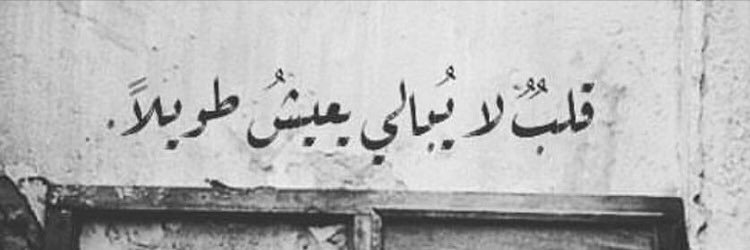 قلبٌ لا يُبالي يعيشُ طويلاً.